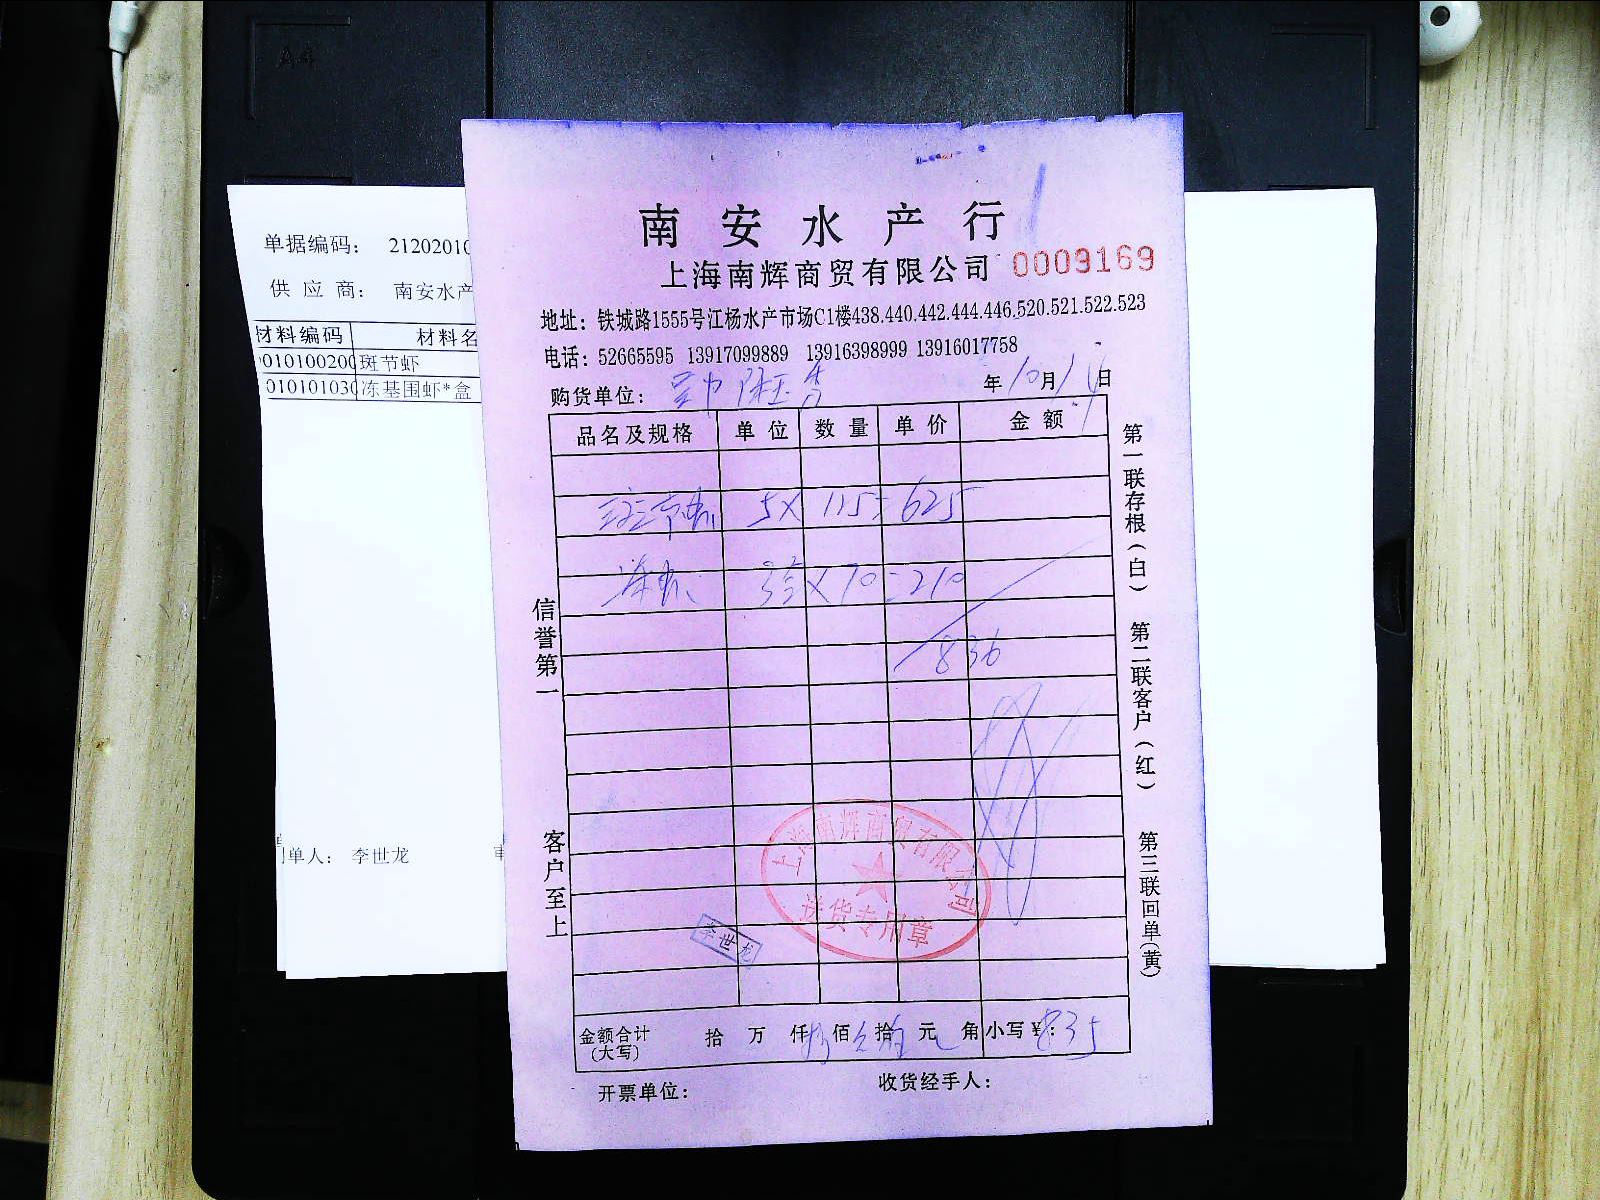 A4
单据编码： 21202010
供 应 商： 南安水产
材料编码 材料名
010100200 斑节虾
010101030 冻基围虾*盒
制单人： 李世龙
南安水产行
上海南辉商贸有限公司 0009169
地址：铁城路1555号江杨水产市场C1楼438.440.442.444.446.520.521.522.523
电话：52665595 13917099889 13916398999 13916017758
购货单位：
年10月14日
品名及规格 单位 数量 单价 金额
斑节虾 5× 125=625
冻虾 3盒×70=210
836
上海南辉商贸有限公司
送货专用章
李世龙
金额合计(大写) 拾 万 仟 捌佰 拾 元 角 小写￥：835
开票单位：
收货经手人：
信誉第一
客户至上
第一联存根(白)
第二联客户(红)
第三联回单(黄)